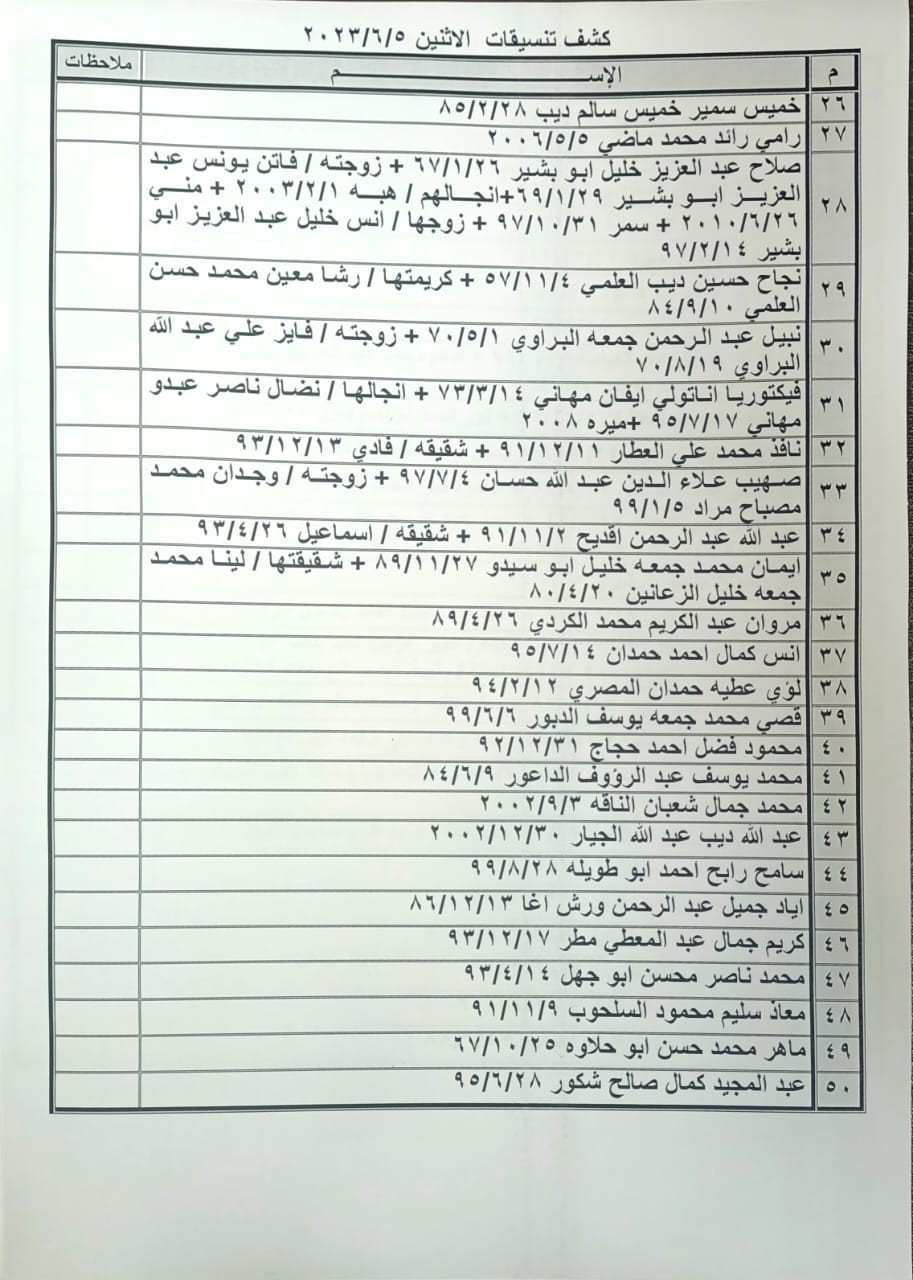 كشف تنسيقات الاثنين ٢٠٢٣/٦/٥
م الإســــم ملاحظات
٢٦ خميس سمير خميس سالم ديب ٨٥/٢/٢٨
٢٧ رامي رائد محمد ماضي ٢٠٠٦/٥/٥
٢٨ صلاح عبد العزيز خليل ابو بشير ٦٧/١/٢٦ + زوجته / فاتن يونس عبد
العزيز ابو بشير ٦٩/١/٢٩+انجالهم / هبه ٢٠٠٣/٢/١ + مني
٢٠١٠/٦/٢٦ + سمر ٩٧/١٠/٣١ + زوجها / انس خليل عبد العزيز ابو
بشير ٩٧/٢/١٤
٢٩ نجاح حسين ديب العلمي ٥٧/١١/٤ + كريمتها / رشا معين محمد حسن
العلمي ٨٤/٩/١٠
٣٠ نبيل عبد الرحمن جمعه البراوي ٧٠/٥/١ + زوجته / فايز علي عبد الله
البراوي ٧٠/٨/١٩
٣١ فيكتوريا اناتولي ايفان مهاني ٧٣/٣/١٤ + انجالها / نضال ناصر عبدو
مهاني ٩٥/٧/١٧ +ميره ٢٠٠٨
٣٢ نافذ محمد علي العطار ٩١/١٢/١١ + شقيقه / فادي ٩٣/١٢/١٣
٣٣ صهيب علاء الدين عبد الله حسان ٩٧/٧/٤ + زوجته / وجدان محمد
مصباح مراد ٩٩/١/٥
٣٤ عبد الله عبد الرحمن اقديح ٩١/١١/٢ + شقيقه / اسماعيل ٩٣/٤/٢٦
٣٥ ايمان محمد جمعه خليل ابو سيدو ٨٩/١١/٢٧ + شقيقتها / لينا محمد
جمعه خليل الزعانين ٨٠/٤/٢٠
٣٦ مروان عبد الكريم محمد الكردي ٨٩/٤/٢٦
٣٧ انس كمال احمد حمدان ٩٥/٧/١٤
٣٨ لؤي عطيه حمدان المصري ٩٤/٢/١٢
٣٩ قصي محمد جمعه يوسف الدبور ٩٩/٦/٦
٤٠ محمود فضل احمد حجاج ٩٢/١٢/٣١
٤١ محمد يوسف عبد الرؤوف الداعور ٨٤/٦/٩
٤٢ محمد جمال شعبان الناقه ٢٠٠٢/٩/٣
٤٣ عبد الله ديب عبد الله الجيار ٢٠٠٢/١٢/٣٠
٤٤ سامح رابح احمد ابو طويله ٩٩/٨/٢٨
٤٥ اياد جميل عبد الرحمن ورش اغا ٨٦/١٢/١٣
٤٦ كريم جمال عبد المعطي مطر ٩٣/١٢/١٧
٤٧ محمد ناصر محسن ابو جهل ٩٣/٤/١٤
٤٨ معاذ سليم محمود السلحوب ٩١/١١/٩
٤٩ ماهر محمد حسن ابو حلاوه ٦٧/١٠/٢٥
٥٠ عبد المجيد كمال صالح شكور ٩٥/٦/٢٨